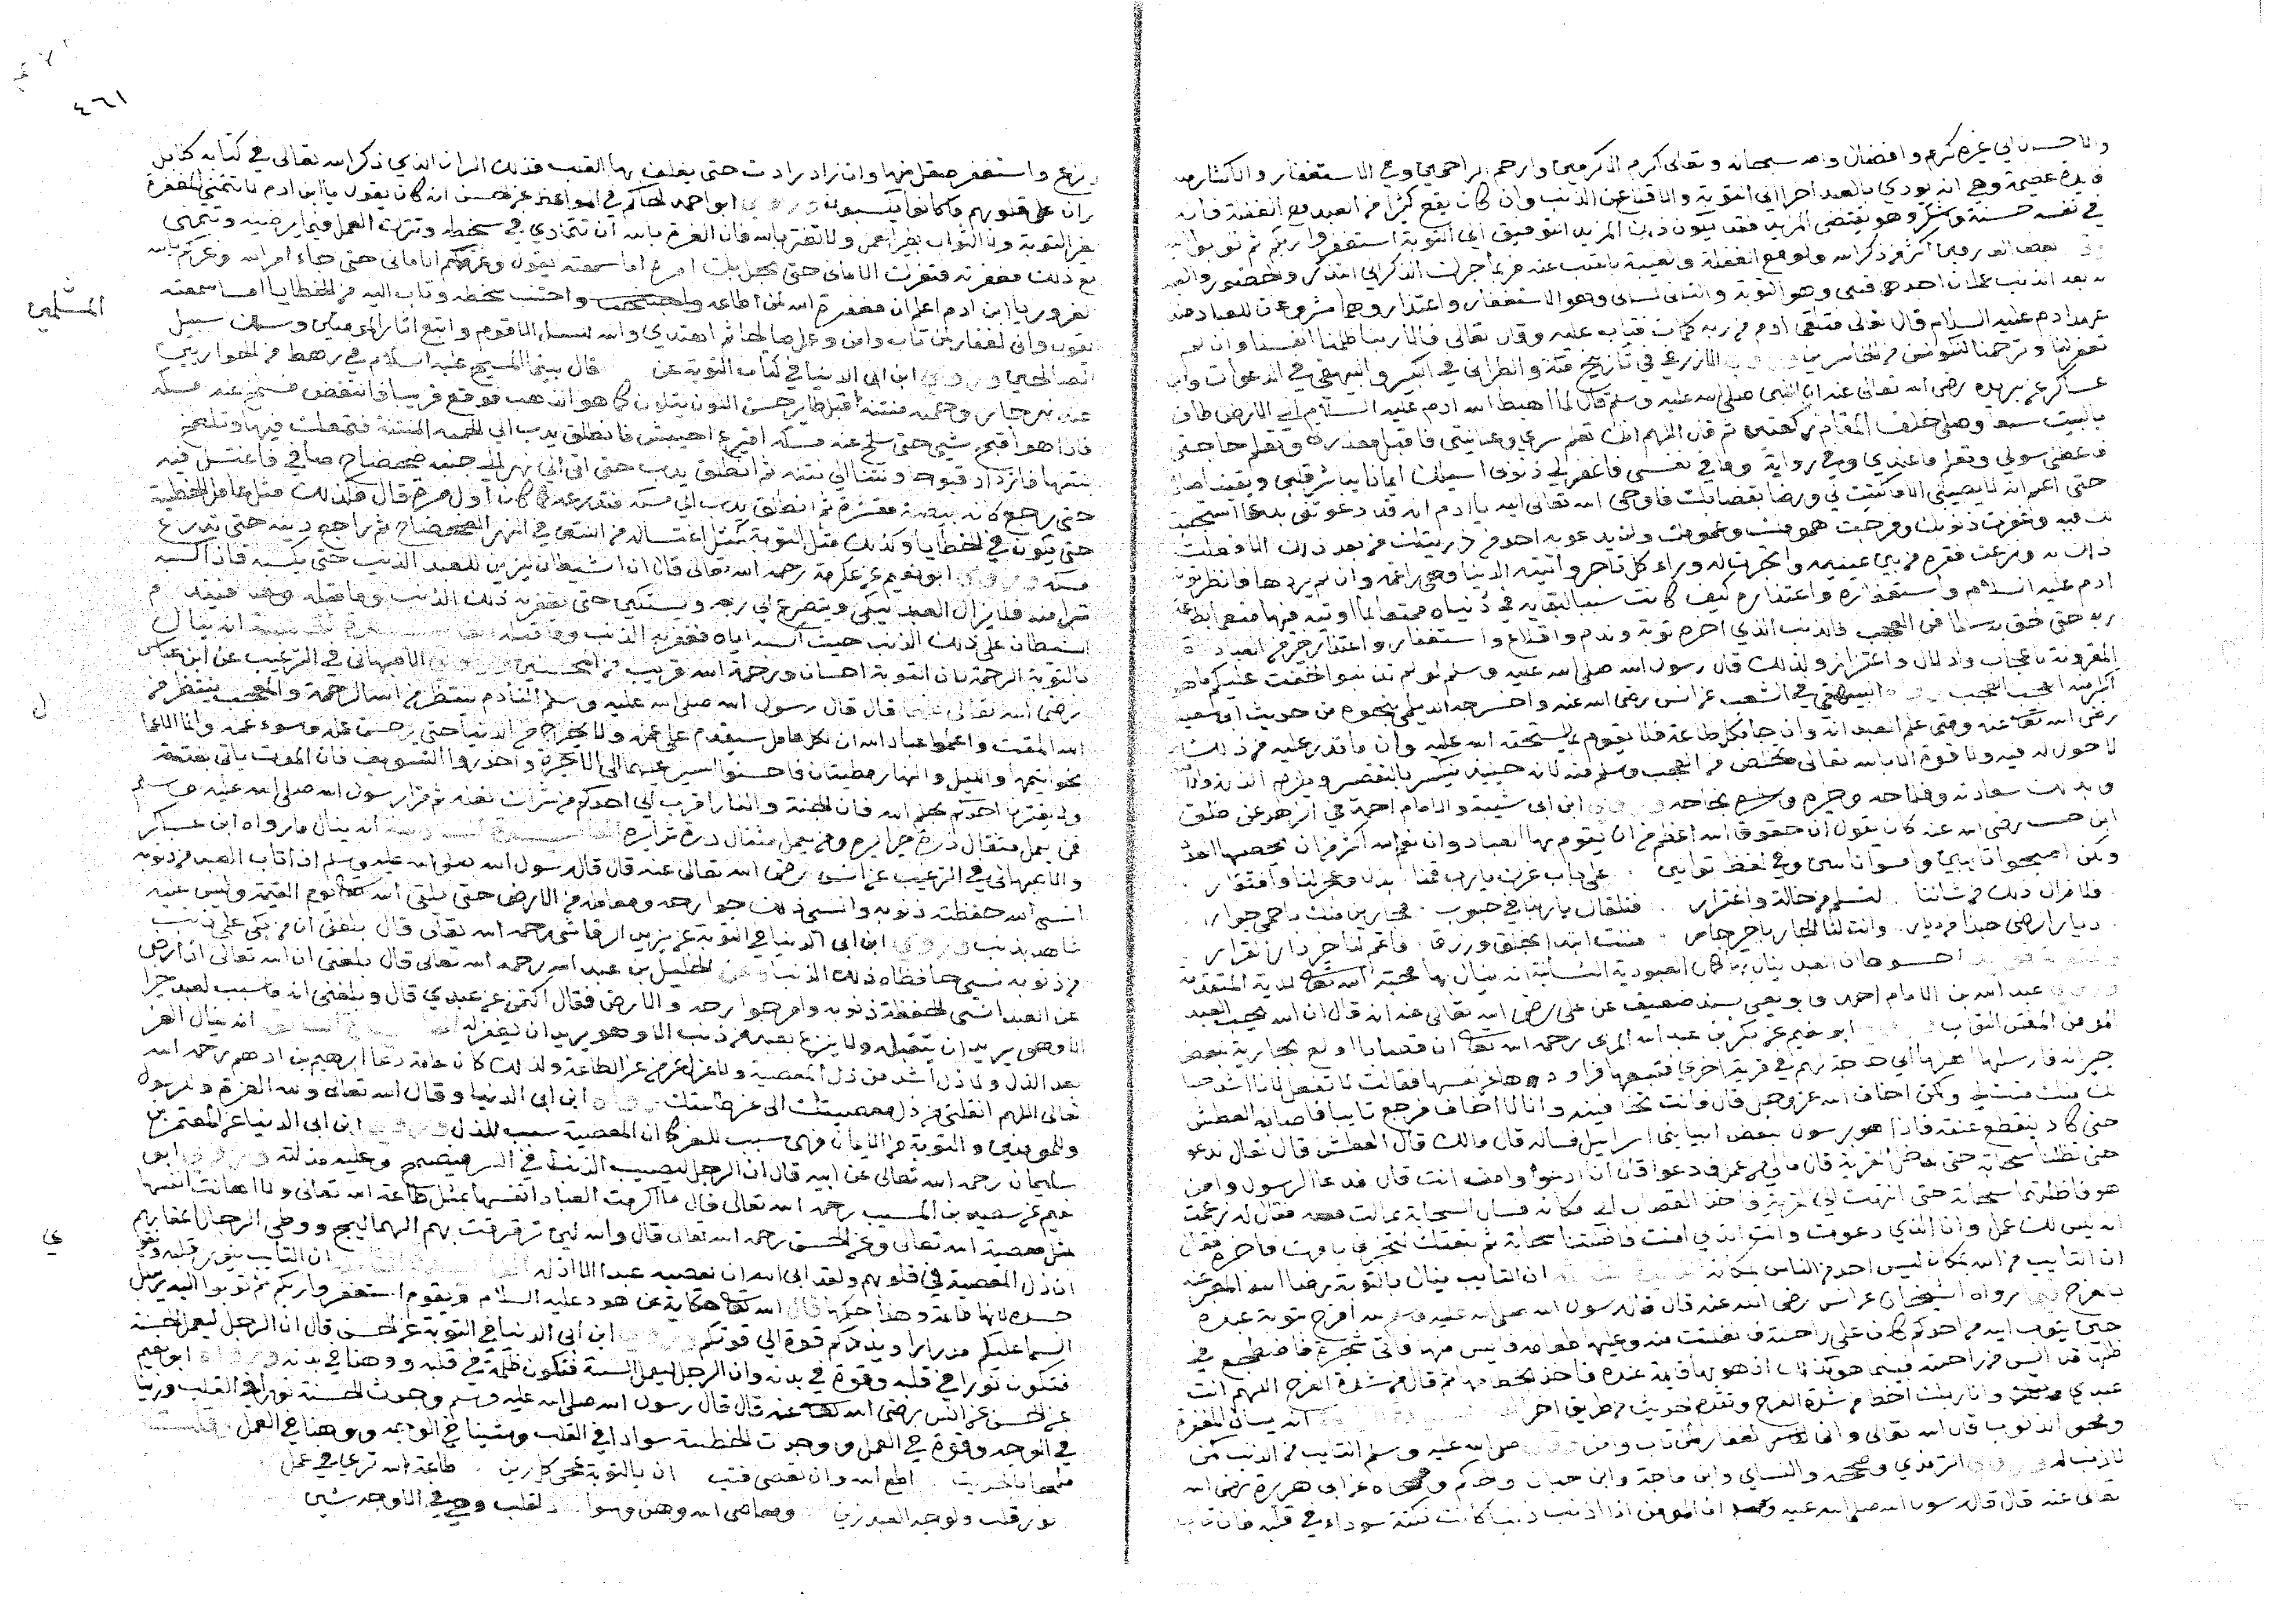 والاحسان الي غيره كرم وافضال والله سبحانه وتعالى اكرم الاكرمين وارحم الراحمين وفي الاستغفار والاكثار منه
فايدة عظيمة وهي انه يودي بالعبد اخرا الي التوبة والاقلاع عن الذنب وان كان يقع كثيرا من العبد مع الغفلة فانه
في نفسه حسنة وشكر وهو يقتضي المزيد فقد يكون ذلك المزيد التوفيق الي التوبة استغفروا ربكم ثم توبوا اليه
بعض العارفين اكثر من ذكر الله ولو مع الغفلة والغيبة بالقلب عنه فربما جرك الذكر الي التذكر والحضور والعبد
له بعد الذنب عملان احدهما قلبي وهو التوبة والثاني لساني وهو الاستغفار واعتذار وهما مشروعان للعباد منذ
عهد ادم عليه السلام قال تعالى فتلقى ادم من ربه كلمات فتاب عليه وقال تعالى قالا ربنا ظلمنا انفسنا وان لم
تغفر لنا وترحمنا لنكونن من الخاسرين وروى الازرقي في تاريخ مكة والطبراني في الكبير والبيهقي في الدعوات وابن
عساكر عن بريدة رضي الله تعالى عنه ان النبي صلى الله عليه وسلم قال لما اهبط الله ادم عليه السلام الي الارض طاف
بالبيت سبعا وصلى خلف المقام ركعتين ثم قال اللهم انك تعلم سري وعلانيتي فاقبل معذرتي وتعلم حاجتي
فاعطني سولي وتعلم ما عندي وفي رواية وما في نفسي فاغفر لي ذنوبي اسيلك ايمانا يباشر قلبي ويقينا صادقا
حتى اعلم انه لا يصيبني الا ما كتبت لي ورضا بقضائك فاوحى الله تعالى اليه يا ادم انه قد دعوتني بدعا استجبت
لك فيه وغفرت ذنوبك وفرجت همومك وغمومك ولن يدعو به احد من ذريتك من بعد ذلك الا فعلت
ذلك به ونزعت فقره من بين عينيه واتجرت له وراء كل تاجر واتته الدنيا وهي راغمة وان لم يردها فانظر توبة
ادم عليه السلام واستغفاره واعتذاره كيف كانت سببا لبقايه في دنياه ممتعا بما اوتيه فيها متعرا بطاعة
ربه حتى لحق به سالما من العجب فالذنب الذي اخره توبة وندم واقلاع واستغفار واعتذار خير من العبادة
المقرونة باعجاب وادلال واغترار ولذلك قال رسول الله صلى الله عليه وسلم لو لم تذنبوا لخفت عليكم ما هو
اكبر منه العجب العجب رواه البيهقي في الشعب عن انس رضي الله عنه واخرجه الديلمي بنحوه من حديث ابي سعيد
رضي الله تعا عنه ومتى علم العبد انه وان جا بكل طاعة فلا يقوم بما يستحقه الله عليه وان ما قدر عليه من ذلك
لا حول له فيه ولا قوة الا بالله تعالى تخلص من العجب وسلم منه لانه حينئذ يتسر بالتقصير ويلزم الذل
وبذلك سعادته وفلاحه وخيره ونجاحه وروى ابن ابي شيبة والامام احمد في الزهد عن طلق
ابن حبيب رضي الله عنه كان يقول ان حقوق الله اعظم من ان يقوم بها العباد وان نعم الله اكثر من ان تحصيها العباد
ولكن اصبحوا تايبين وامسوا تايبين وفي لفظ توابين على باب عزك يارب قمنا بذلة وعجز لنا وافتقار
فلا مزال ذلك من شاننا لتسلم من حالة واغترار فنلقاك ياربنا في حبوب مجاورين منك
ديار ارضى حبذا من ديار وانت لنا الجار يا خير جار
ان العبد ينال بها كان العبودية الثابتة انه ينال بها محبة الله تعا
عبد الله بن الامام احمد وابو يعلى بسند ضعيف عن علي رضي الله تعالى عنه انه قال ان الله يحب العبد
المومن المفتن التواب ابو نعيم عن بكر بن عبد الله المزني رحمه الله تعا ان قصابا اولع بجارية لبعض
جيرانه فارسلها اهلها الى حاجة لهم في قرية اخرى فتبعها فراودها عن نفسها فقالت لا تفعل لانا اشد حبا
لك منك لي ولكني اخاف الله عز وجل قال وانت تخافينه وانا لا اخاف فرجع تايبا فاصابه العطش
حتى كاد ينقطع عنقه فاذا هو برسول لبعض انبيا بني اسرائيل فساله قال مالك قال العطش قال تعال ندعو
حتى تظلنا سحابة حتى ندخل القرية قال مالي من عمل فادعوا قال انا ادعوا وامن انت قال فدعا الرسول وامن
هو فاظلتهما سحابة حتى انتهت الي القرية فاخذ القصاب الي مكانه فمالت السحابة فمالت معه فقال له زعمت
انه ليس لك عمل وانا الذي دعوت وانت الذي امنت فاظلتنا سحابة ثم تبعتك لتخبرني بامرك فاخبره فقال
ان التايب من الله بمكان ليس احد من الناس بمكانه ان التايب ينال بالتوبة رضا الله المعبر عنه
بالفرح فيما رواه الشيخان عن انس رضي الله عنه قال قال رسول الله صلى الله عليه وسلم لله افرح بتوبة عبده
حين يتوب اليه من احدكم كان على راحلته فانفلتت منه وعليها طعامه فايس منها فاتى شجرة فاضطجع في
ظلها قد ايس من راحلته فبينما هو كذلك اذ هو بها قايمة عنده فاخذ بخطامها ثم قال من شدة الفرح اللهم انت
عبدي وانا ربك اخطا من شدة الفرح وتقدم حديث من طريق اخر انه ينال المغفرة
ومحو الذنوب قال الله تعالى واني لغفار لمن تاب وامن وقال صلى الله عليه وسلم التايب من الذنب كمن
لا ذنب له وروى الترمذي وصححه والنساي وابن ماجة وابن حبان والحاكم وصححاه عن ابي هريرة رضي الله
تعالى عنه قال قال رسول الله صلى الله عليه وسلم ان المومن اذا اذنب ذنبا كانت نكتة سوداء في قلبه فان تاب
٤٦١
ونزع واستغفر صقل منها وان زاد زادت حتى يغلف بها القلب فذلك الران الذي ذكر الله تعالى في كتابه كلا بل
ران على قلوبهم ما كانوا يكسبون وروى ابو احمد الحاكم في المواعظ عن الحسن انه كان يقول يا ابن ادم لا تتمنى المغفرة
بغير التوبة ولا الثواب بغير العمل ولا تغتر بالله فان الغرة بالله ان تتمادي في سخطه وتترك العمل فيما يرضيه وتتمنى
مع ذلك مغفرته فتغرك الاماني حتى يحل بك امره اما سمعته يقول وغرتكم الاماني حتى جاء امر الله وغركم بالله
الغرور يا ابن ادم اعلم ان مغفرة الله لمن اطاعه واجتنب سخطه وتاب اليه من الخطايا اما سمعته
يقول واني لغفار لمن تاب وامن وعمل صالحا ثم اهتدى والله لا القوم واتبع اثار المومنين وسلك سبيل
الصالحين وروى ابن ابي الدنيا في كتاب التوبة عن قال بينما المسيح عليه السلام في رهط من الحواريين
فاذا هو اقبح شي حتى سلخ عنه مسكه اقيرع احيمش فانطلق يدب الي الحمة المنتنة فتمعك فيها وتلطخ
بنتنها فازداد قبوحا ونتنا الي نتنه ثم انطلق يدب حتى اتى الي نهر الي جنبه ضحضاح صافي فاغتسل فيه
حتى رجع كانه بيضة مقشرة ثم انطلق يدب الي مسكه فتدرعه كما كان اول مرة قال فكذلك مثل عامل الخطية
حتى يكون في الخطايا وكذلك مثل التوبة كمثل اغتساله من النتن في النهر الضحضاح ثم راجع دينه حتى تدرع
مسكه وروى ابو نعيم عن عكرمة رحمه الله تعالى قال ان الشيطان ليزين للعبد الذنب حتى يكسبه فاذا كسبه
تبرا منه فلا يزال العبد يبكي ويتضرع الي ربه ويستكين حتى يغفر له ذلك الذنب وما قبله فيندم
الشيطان على ذلك الذنب حيث اكسبه اياه فغفر له الذنب وما قبله انه ينال
بالتوبة الرحمة لان التوبة احسان ورحمة الله قريب من المحسنين وروى الاصبهاني في الترغيب عن ابن عباس
رضي الله تعالى عنهما قال قال رسول الله صلى الله عليه وسلم النادم ينتظر من الله الرحمة والمعجب ينتظر من
الله المقت واعلموا عباد الله ان كل عامل سيقدم على عمله ولا يخرج من الدنيا حتى يرى حسن عمله وسوء عمله وانما الاعمال
بخواتيمها والليل والنهار مطيتان فاحسنوا السير عليهما الي الاخرة واحذروا التسويف فان الموت ياتي بغتة
ولا يغترن احدكم بحلم الله فان الجنة والنار اقرب الي احدكم من شراك نعله ثم قرا رسول الله صلى الله عليه وسلم
فمن يعمل مثقال ذرة خيرا يره ومن يعمل مثقال ذرة شرا يره انه ينال ما رواه ابن عساكر
والاصبهاني في الترغيب عن انس رضي الله تعالى عنه قال قال رسول الله صلى الله عليه وسلم اذا تاب العبد من ذنوبه
انسى الله حفظته ذنوبه وانسى ذلك جوارحه ومعالمه من الارض حتى يلقى الله تعالى يوم القيمة وليس عليه
شاهد بذنب وروى ابن ابي الدنيا في التوبة عن يزيد الرقاشي رحمه الله تعالى قال بلغني ان من بكى على ذنب
من ذنوبه نسي حافظاه ذلك الذنب وعن الخليل بن عبد الله رحمه الله تعالى قال بلغني ان الله تعالى اذا رضي
عن العبد انسى الحفظة ذنوبه وامر جوارحه والارض فقال اكتمن عن عبدي قال وبلغني انه ما سبب لعبد خيرا
الا وهو يريد ان يتقبله ولا ينزع بعبد من ذنب الا وهو يريد ان يغفر له انه ينال العز
بعد الذل ولا ذل اشد من ذل المعصية ولا عز اعز من عز الطاعة ولذلك كان عامة دعا ابرهيم بن ادهم رحمه الله
تعالى اللهم انقلني من ذل معصيتك الي عز طاعتك رواه ابن ابي الدنيا وقال الله تعالى ولله العزة ولرسوله
وللمومنين والتوبة من الايمان فهي سبب للعز كما ان المعصية سبب للذل وروى ابن ابي الدنيا عن المعتمر بن
سليمان رحمه الله تعالى عن ابيه قال ان الرجل ليصيب الذنب في السر فيصبح وعليه مذلته وروى ابو
نعيم عن سعيد بن المسيب رحمه الله تعالى قال ما اكرمت العباد انفسها بمثل طاعة الله تعالى ولا اهانت انفسها
بمثل معصية الله تعالى وعن الحسن رحمه الله تعالى قال والله لين ترقرقت بهم الهماليج ووطي الرجال اعقابهم
ان ذل المعصية في قلوبهم ولقد ابى الله ان يعصيه عبد الا اذله ان التايب ينور قلبه ويقوى
جسده لانها طاعة وهذا حكمها قال الله تعا حكاية عن هود عليه السلام ويقوم استغفروا ربكم ثم توبوا اليه يرسل
السما عليكم مدرارا ويزدكم قوة الي قوتكم وروى ابن ابي الدنيا في التوبة عن الحسن قال ان الرجل ليعمل الحسنة
فتكون نورا في قلبه وقوة في بدنه وان الرجل ليعمل السيئة فتكون ظلمة في قلبه ووهنا في بدنه وروى ابو نعيم
عن الحسن عن انس رضي الله تعا عنه قال قال رسول الله صلى الله عليه وسلم وجدت الحسنة نورا في القلب وزينا
في الوجه وقوة في العمل ووجدت الخطيئة سوادا في القلب وشينا في الوجه ووهنا في العمل
اطع الله وان تعصي فتب ان بالتوبة يمحى كل رين طاعة الله ترى في عمل
نور قلب ولوجه العبد زين ومعاصي الله وهن وسواد لقلب وهي في الاوجه شين
المسلمين
ل
ي